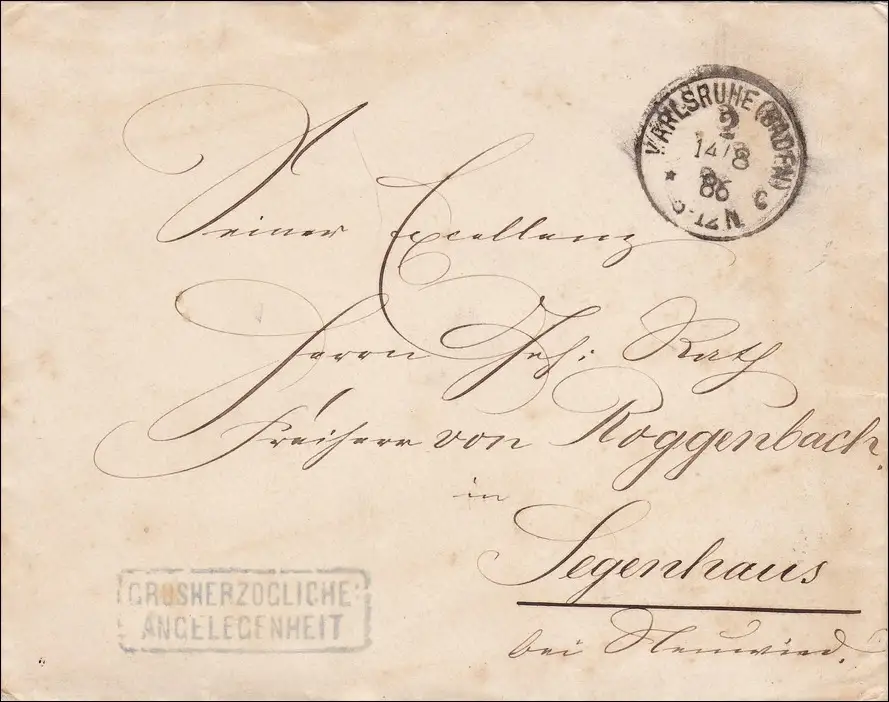 KARLSRUHE (BADEN)
2
14/8
86
* 9-12 N
Seiner Excellenz
Herrn Geh: Rath
Freiherr von Roggenbach
in
Segenhaus
bei Neuwied.
GROSHERZOGLICHE
ANGELEGENHEIT